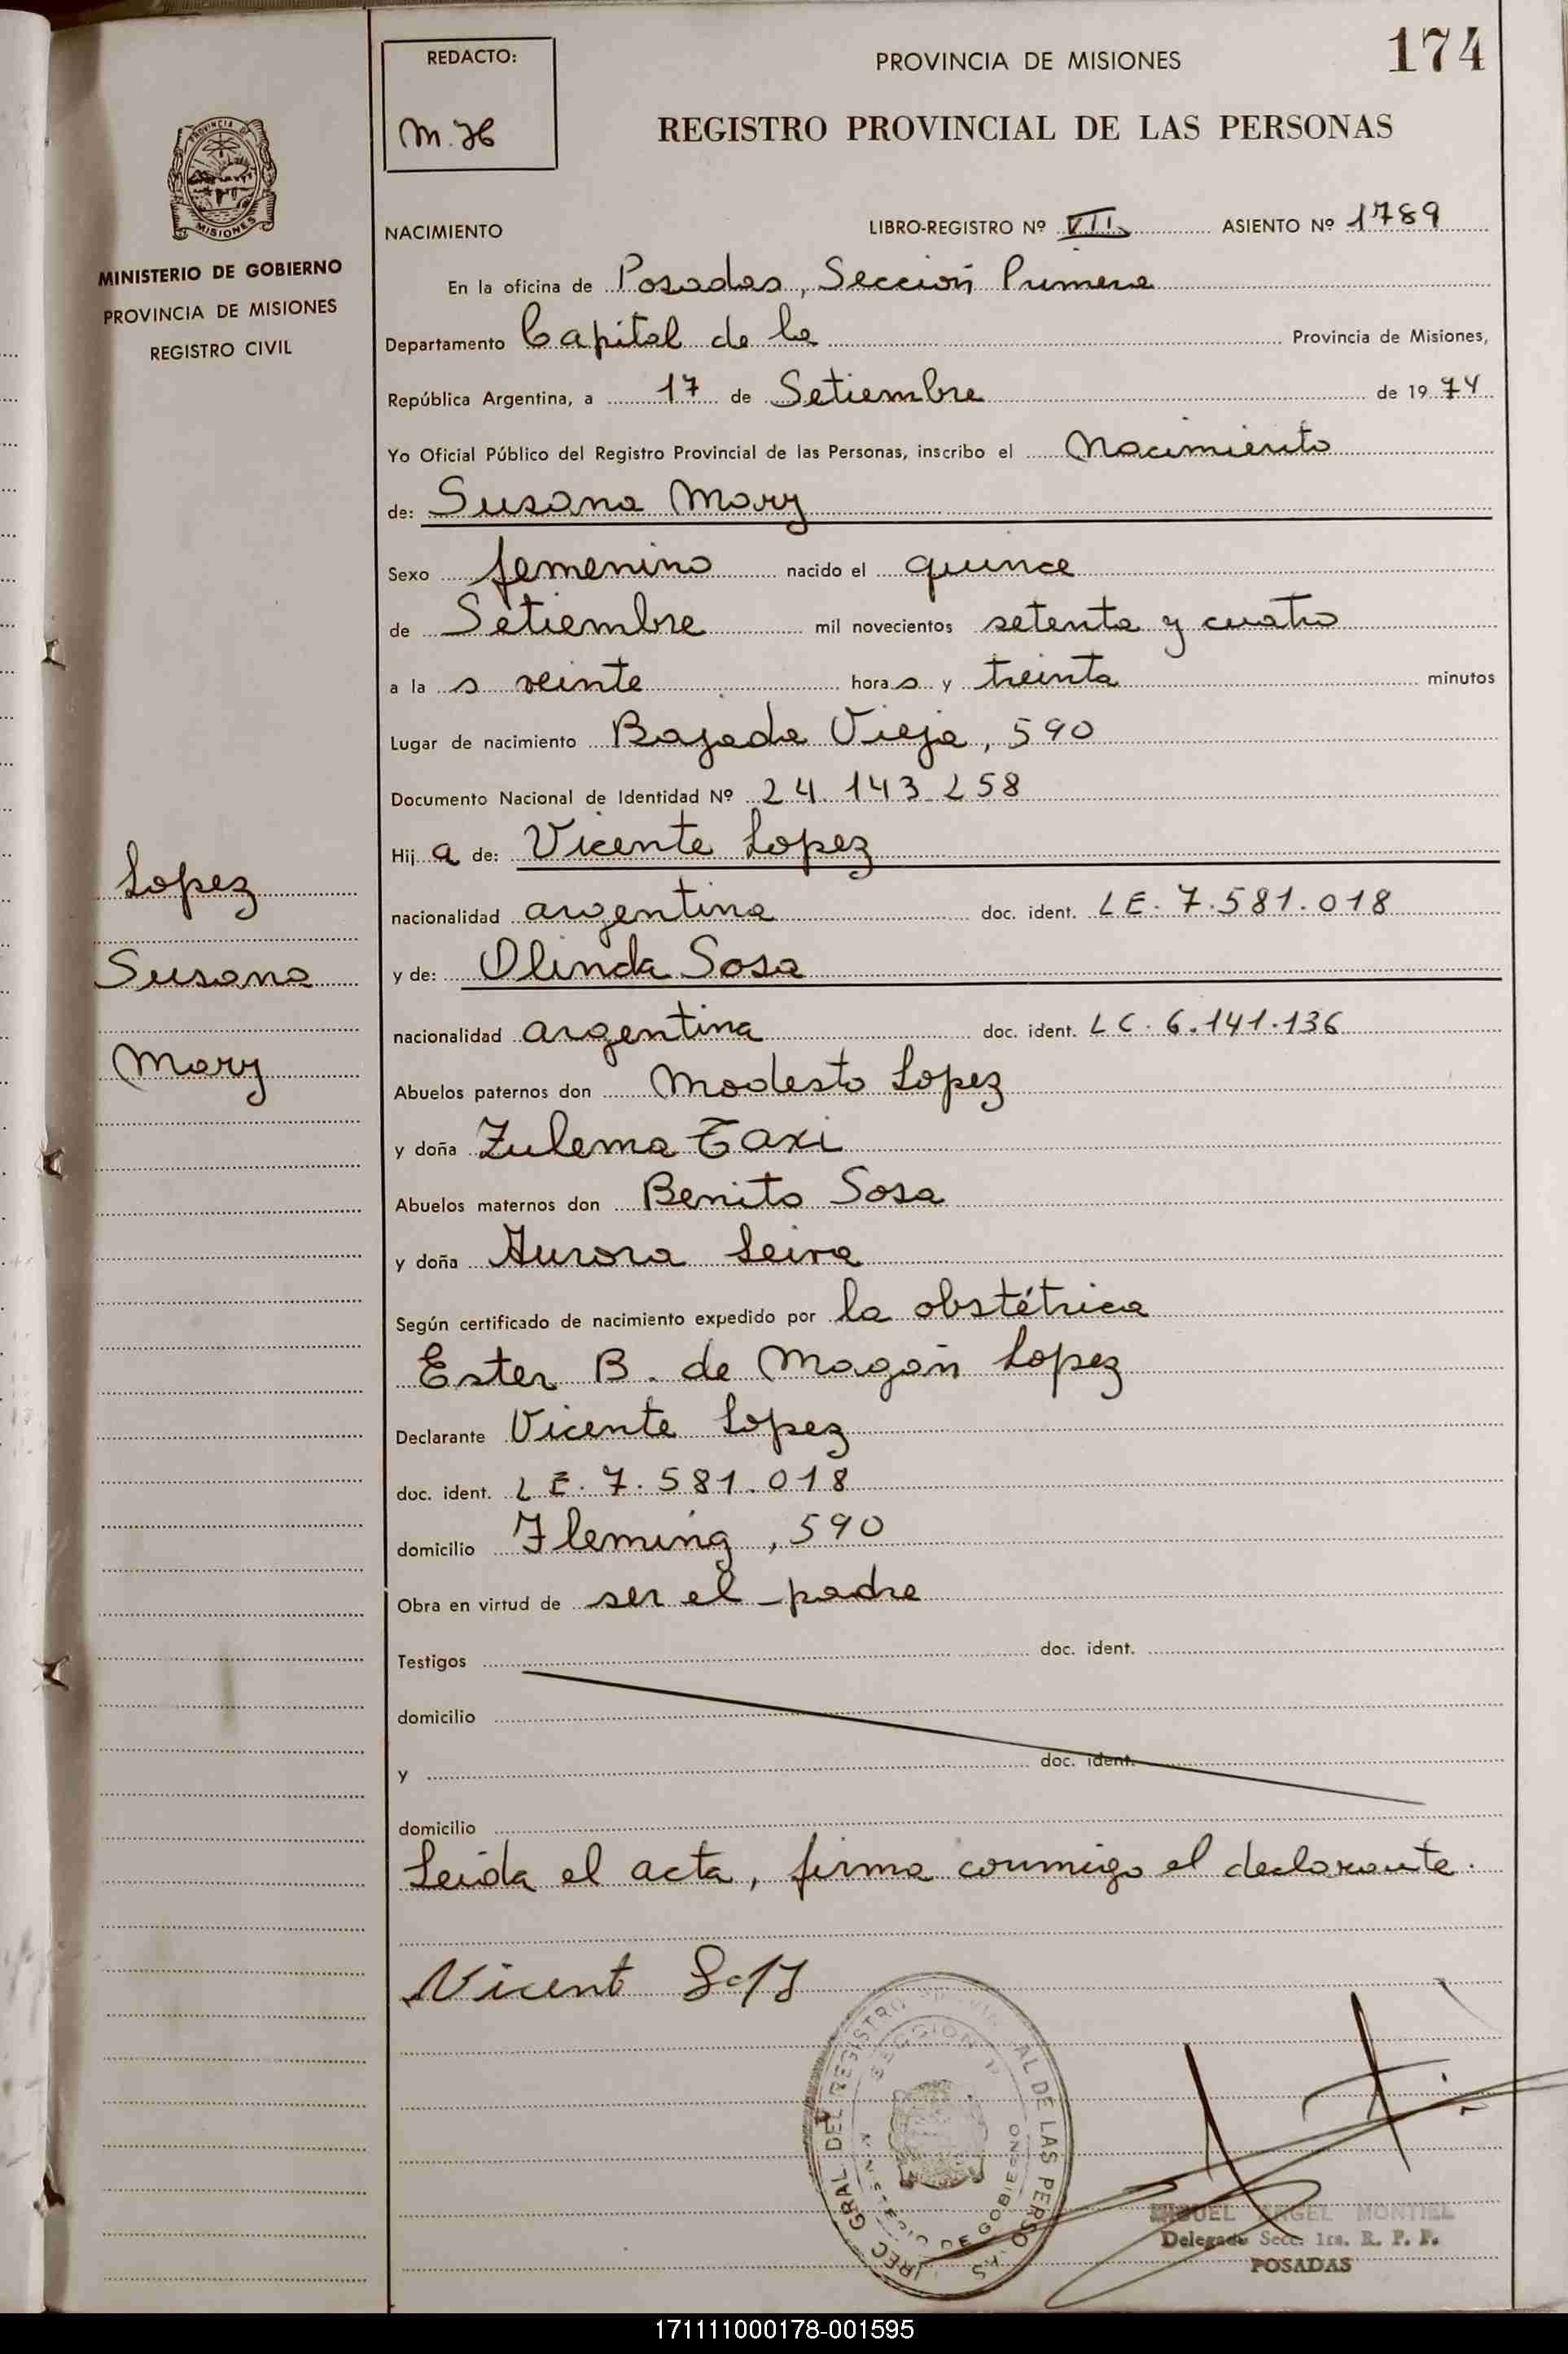 174
REDACTO:
M.H
PROVINCIA DE MISIONES
REGISTRO PROVINCIAL DE LAS PERSONAS
PROVINCIA DE
MISIONES
MINISTERIO DE GOBIERNO
PROVINCIA DE MISIONES
REGISTRO CIVIL
NACIMIENTO LIBRO-REGISTRO Nº VII ASIENTO Nº 1789
En la oficina de Posadas, Sección Primera
Departamento Capital de la Provincia de Misiones,
República Argentina, a 17 de Setiembre de 1974
Yo Oficial Público del Registro Provincial de las Personas, inscribo el Nacimiento
de: Susana Mary
Sexo femenino nacido el quince
de Setiembre mil novecientos setenta y cuatro
a la s veinte hora s y treinta minutos
Lugar de nacimiento Bajada Vieja, 590
Documento Nacional de Identidad Nº 24.143.258
Hij a de: Vicente Lopez
nacionalidad argentina doc. ident. LE. 7.581.018
y de: Olinda Sosa
nacionalidad argentina doc. ident. LC. 6.141.136
Abuelos paternos don Modesto Lopez
y doña Zulema Taxi
Abuelos maternos don Benito Sosa
y doña Aurora Leiva
Según certificado de nacimiento expedido por la obstétrica
Ester B. de Magan Lopez
Declarante Vicente Lopez
doc. ident. LE. 7.581.018
domicilio Fleming, 590
Obra en virtud de ser el padre
Testigos doc. ident.
domicilio
y doc. ident.
domicilio
Leida el acta, firma conmigo el declarante.
Lopez
Susana
Mary
Vicent
DE LAS
SECCION
DE GOBIERNO
MIGUEL ANGEL MONTIEL
Delegado Secc. 1ra. R. P. P.
POSADAS
171111000178-001595